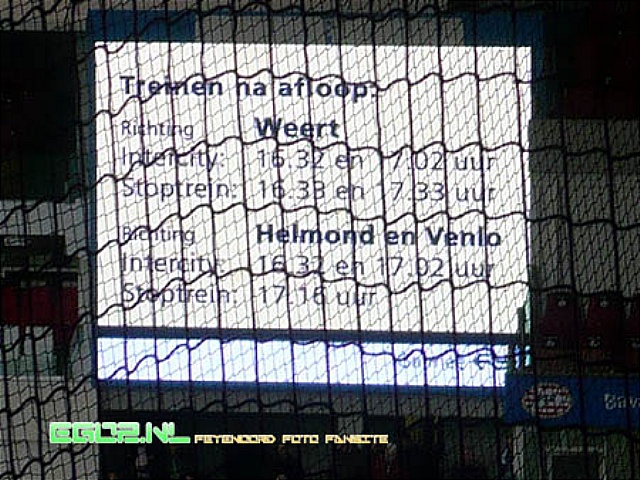 Treinen na afloop:
Richting Weert
Intercity: 16.32 en 17.02 uur
Stoptrein: 16.33 en 17.33 uur
Richting Helmond en Venlo
Intercity: 16.32 en 17.02 uur
Stoptrein: 17.16 uur
PSV
EG02.NL FEYENOORD FOTO FANSITE